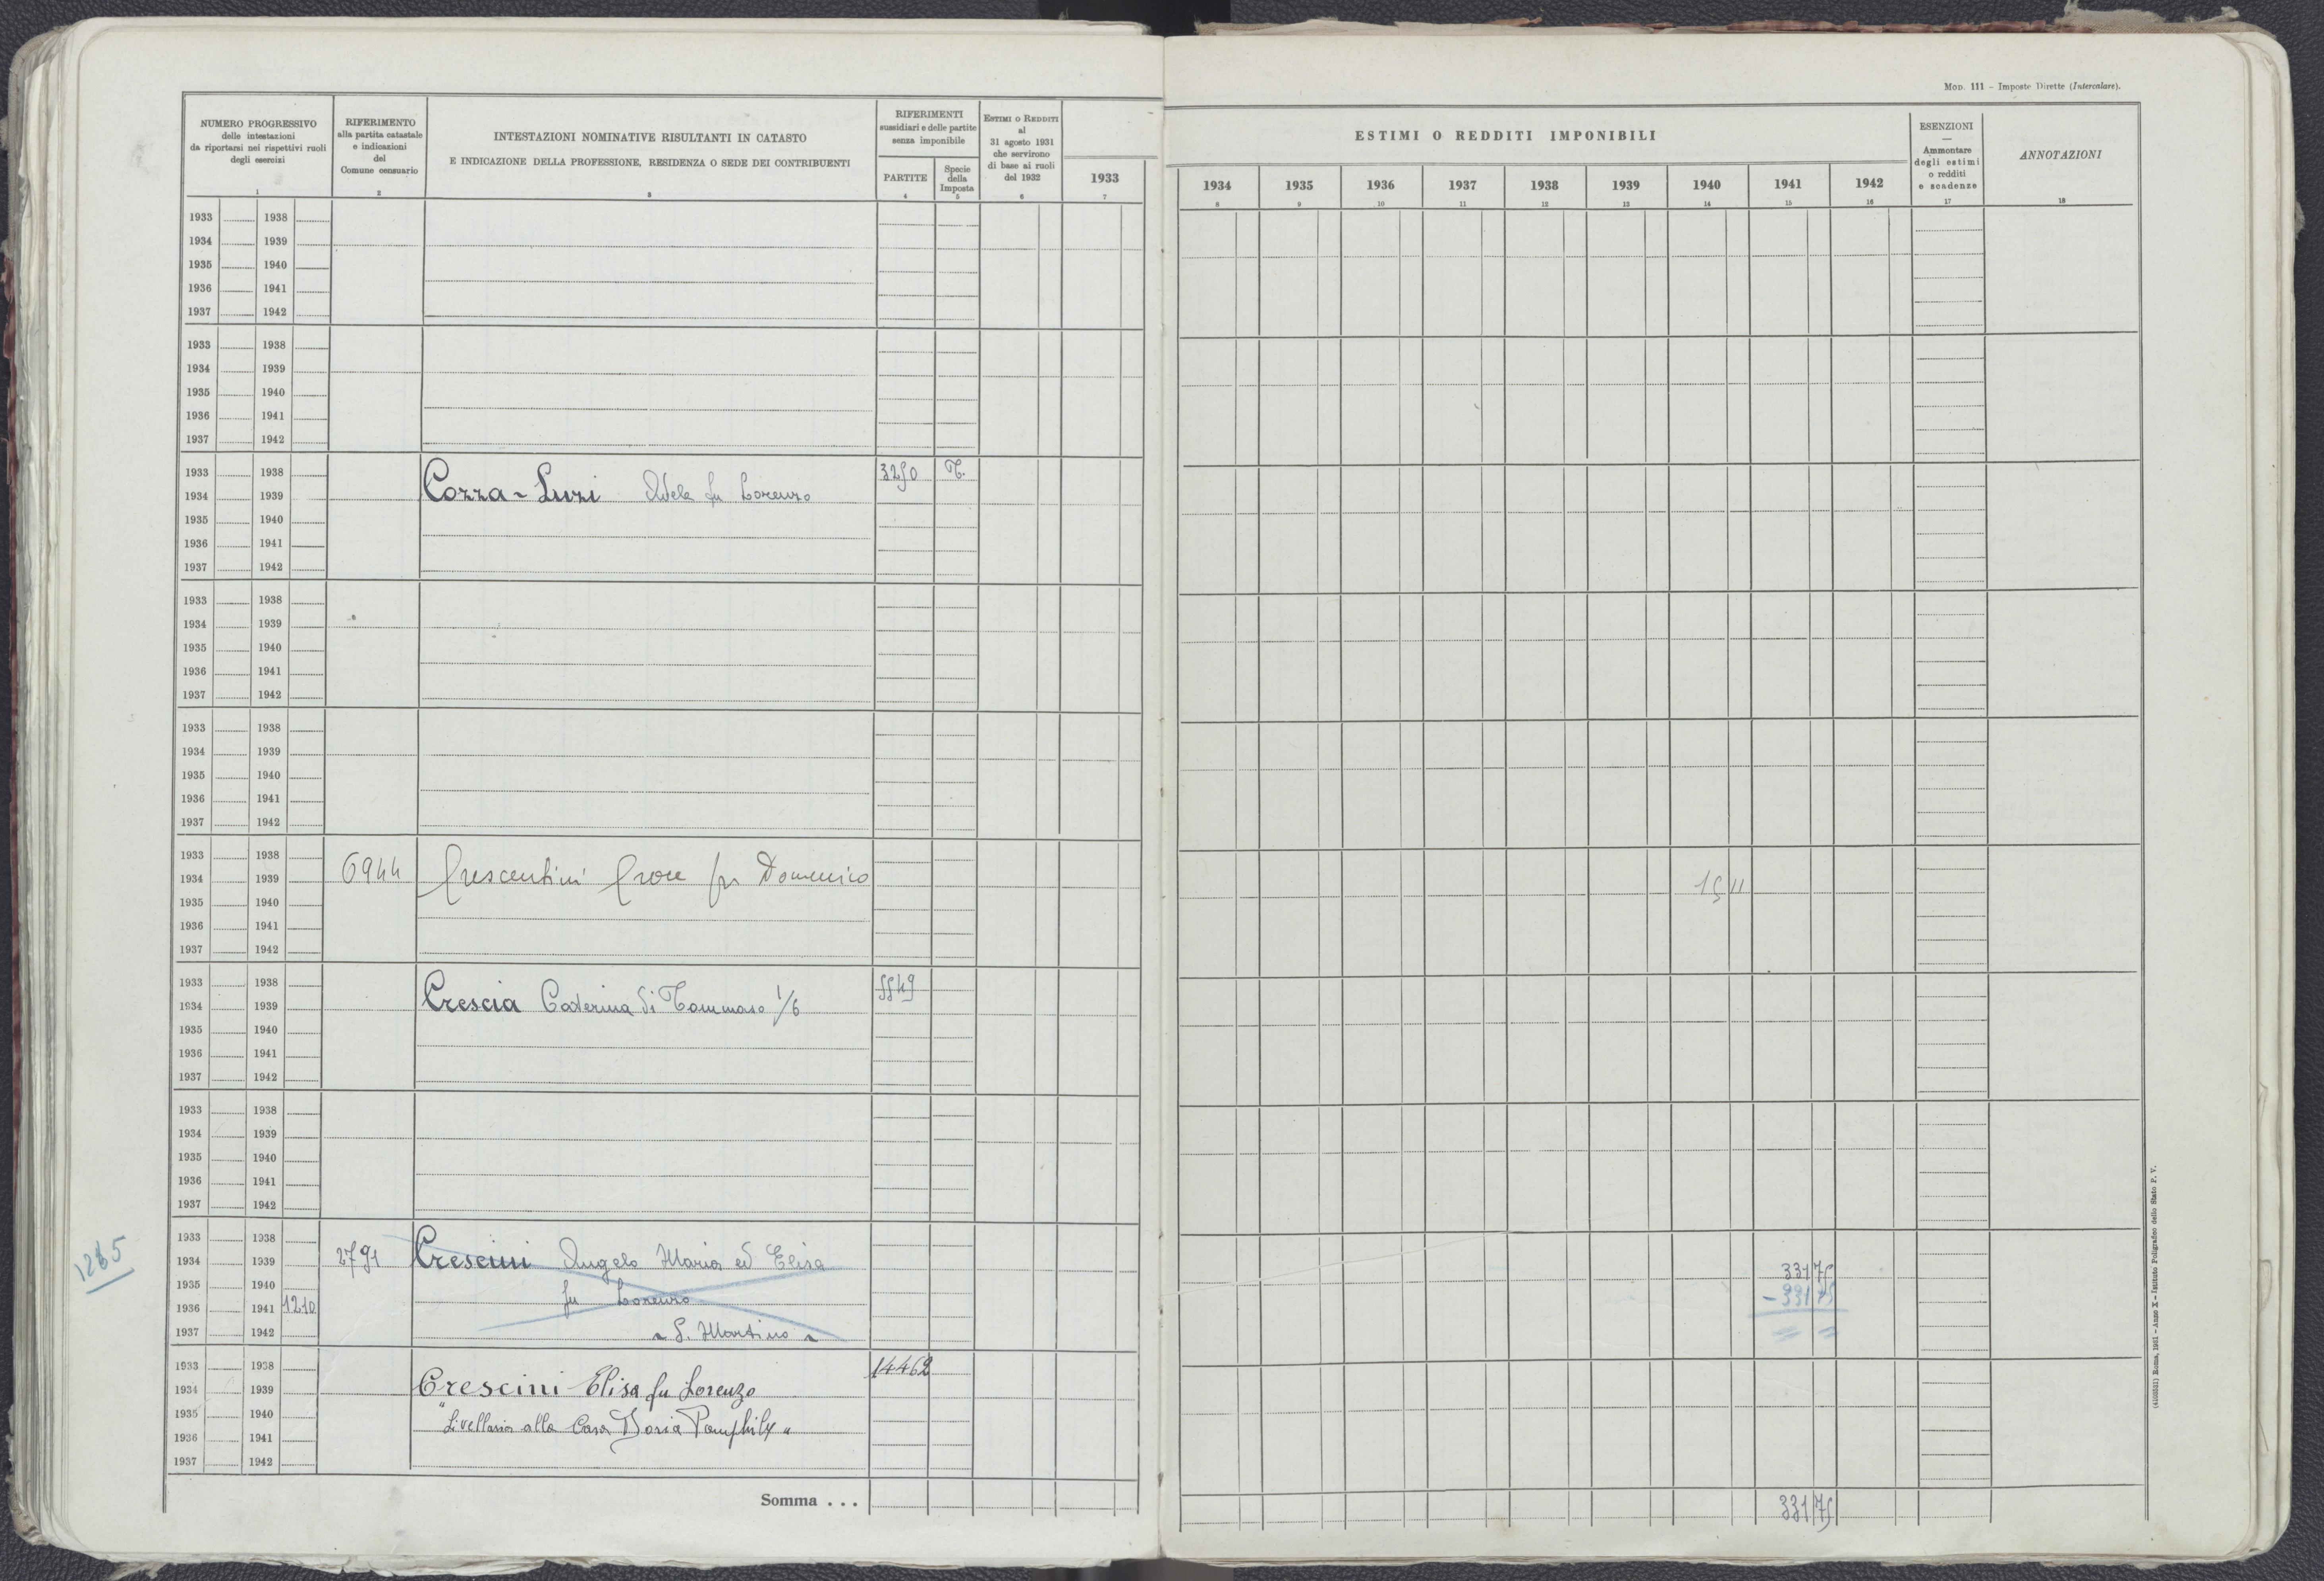 MOD. 111 - Imposte Dirette (Intercalare).
NUMERO PROGRESSIVO
delle intestazioni
da riportarsi nei rispettivi ruoli
degli esercizi
1
RIFERIMENTO
alla partita catastale
e indicazioni
del
Comune censuario
2
INTESTAZIONI NOMINATIVE RISULTANTI IN CATASTO
E INDICAZIONE DELLA PROFESSIONE, RESIDENZA O SEDE DEI CONTRIBUENTI
3
RIFERIMENTI
sussidiari e delle partite
senza imponibile
PARTITE
4
Specie
della
Imposta
5
ESTIMI O REDDITI
al
31 agosto 1931
che servirono
di base ai ruoli
del 1932
6
1933
7
ESTIMI O REDDITI IMPONIBILI
1934 1935 1936 1937 1938 1939 1940 1941 1942
8 9 10 11 12 13 14 15 16
ESENZIONI
—
Ammontare
degli estimi
o redditi
e scadenze
17
ANNOTAZIONI
18
1933 1938
1934 1939
1935 1940
1936 1941
1937 1942
1933 1938
1934 1939
1935 1940
1936 1941
1937 1942
1933 1938 3250 T.
1934 1939 Cozza - Luzi Adele fu Lorenzo
1935 1940
1936 1941
1937 1942
1933 1938
1934 1939
1935 1940
1936 1941
1937 1942
1933 1938
1934 1939
1935 1940
1936 1941
1937 1942
1933 1938
1934 1939 6944 Crescentini Croce fu Domenico 15 11
1935 1940
1936 1941
1937 1942
1933 1938 5549
1934 1939 Crescia Caterina di Tommaso 1/6
1935 1940
1936 1941
1937 1942
1933 1938
1934 1939
1935 1940
1936 1941
1937 1942
1933 1938
1934 1939 2791 Crescini Angelo Maria ed Elisa 331 75
1935 1940 fu Lorenzo - 331 75
1936 1941 1210
1937 1942 - S. Martino - = =
1933 1938 14462
1934 1939 Crescini Elisa fu Lorenzo
1935 1940 "Livellaria alla Casa Doria Pamphily"
1936 1941
1937 1942
Somma . . . 331 75